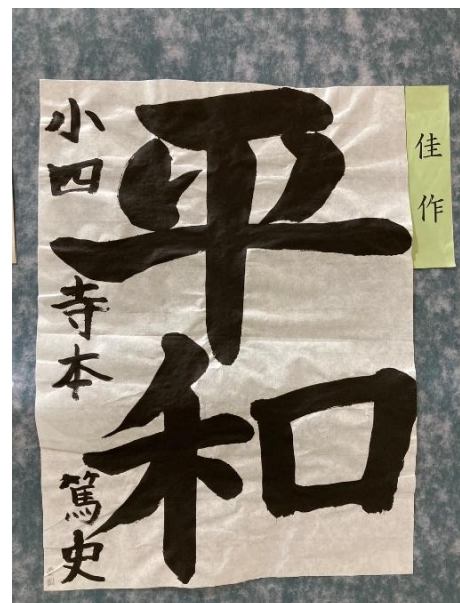 佳作
平和
小四 寺本 篤史